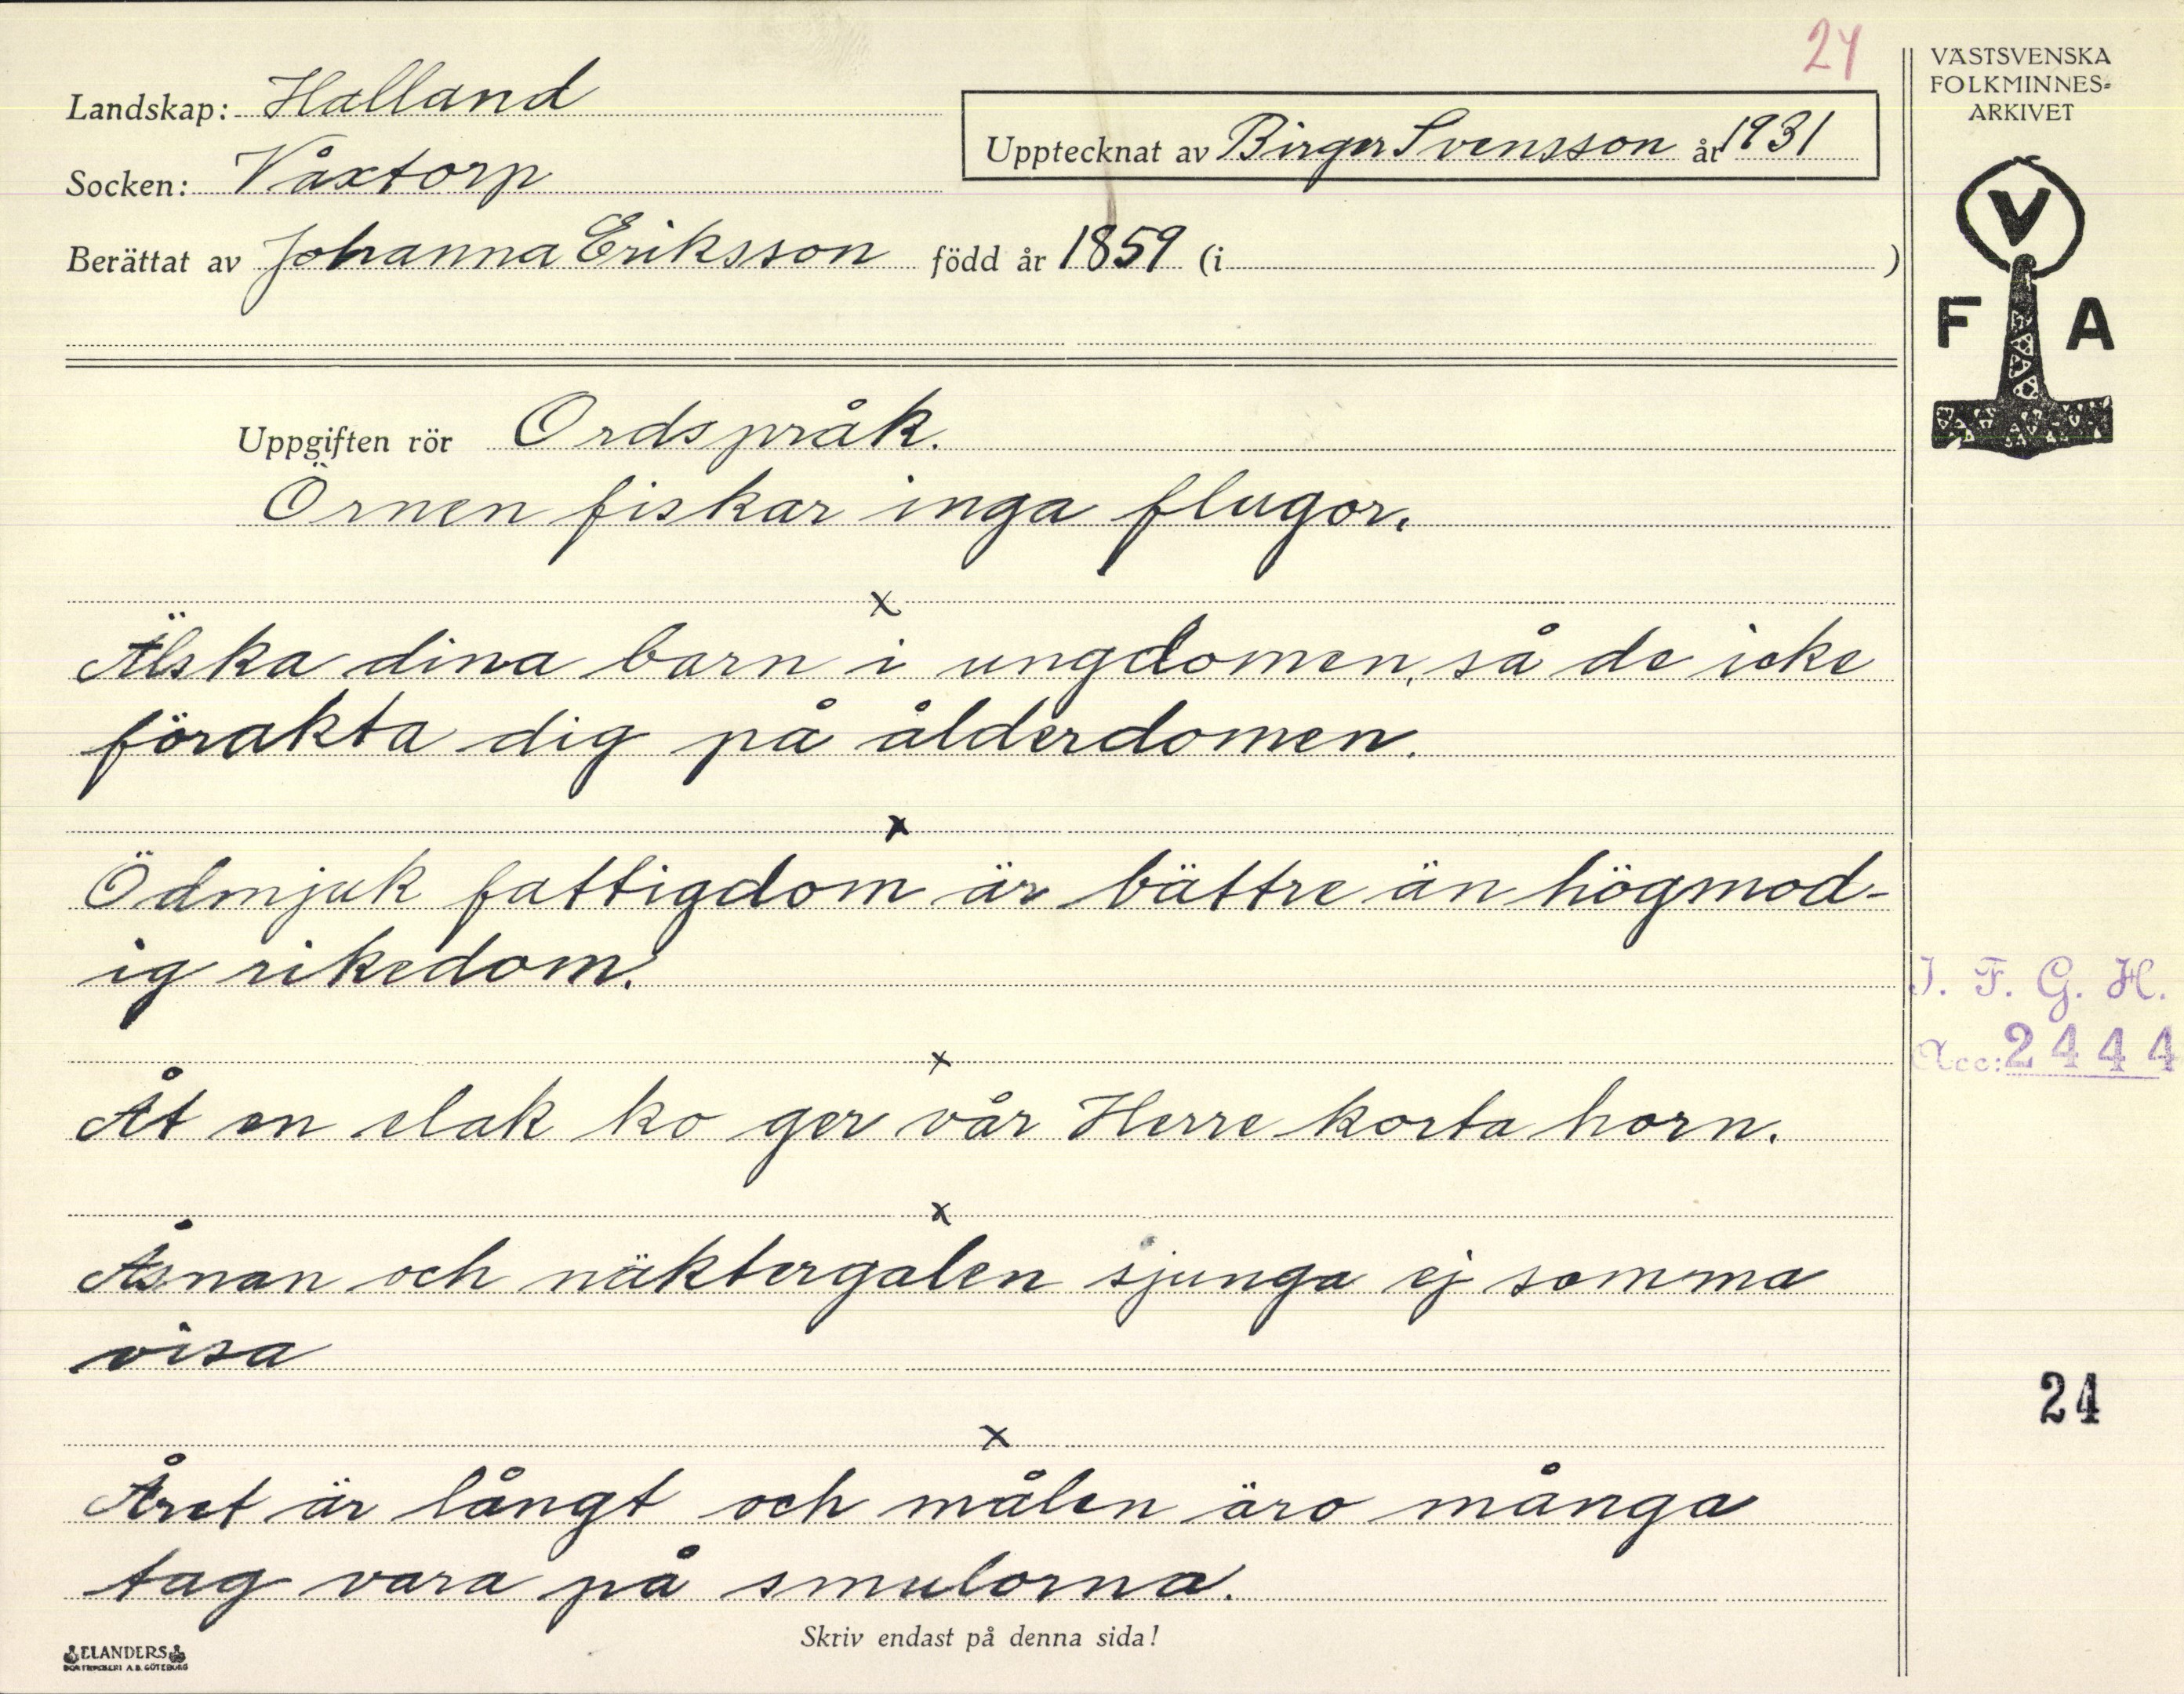 24
Landskap: Halland
Upptecknat av Birger Svensson år 1931
Socken: Våxtorp
Berättat av Johanna Eriksson född år 1859 (i )
VÄSTSVENSKA
FOLKMINNES-
ARKIVET
V
F A
Uppgiften rör Ordspråk.
Örnen fiskar inga flugor.
x
Älska dina barn i ungdomen, så de icke
förakta dig på ålderdomen.
x
Ödmjuk fattigdom är bättre än högmod-
ig rikedom.
x
Åt en elak ko ger vår Herre korta horn.
x
Åsnan och näktergalen sjunga ej samma
visa
x
Året är långt och målen äro många
tag vara på smulorna.
I. F. G. H.
Acc: 2444
24
Skriv endast på denna sida!
ELANDERS
BOKTRYCKERI A.B. GÖTEBORG